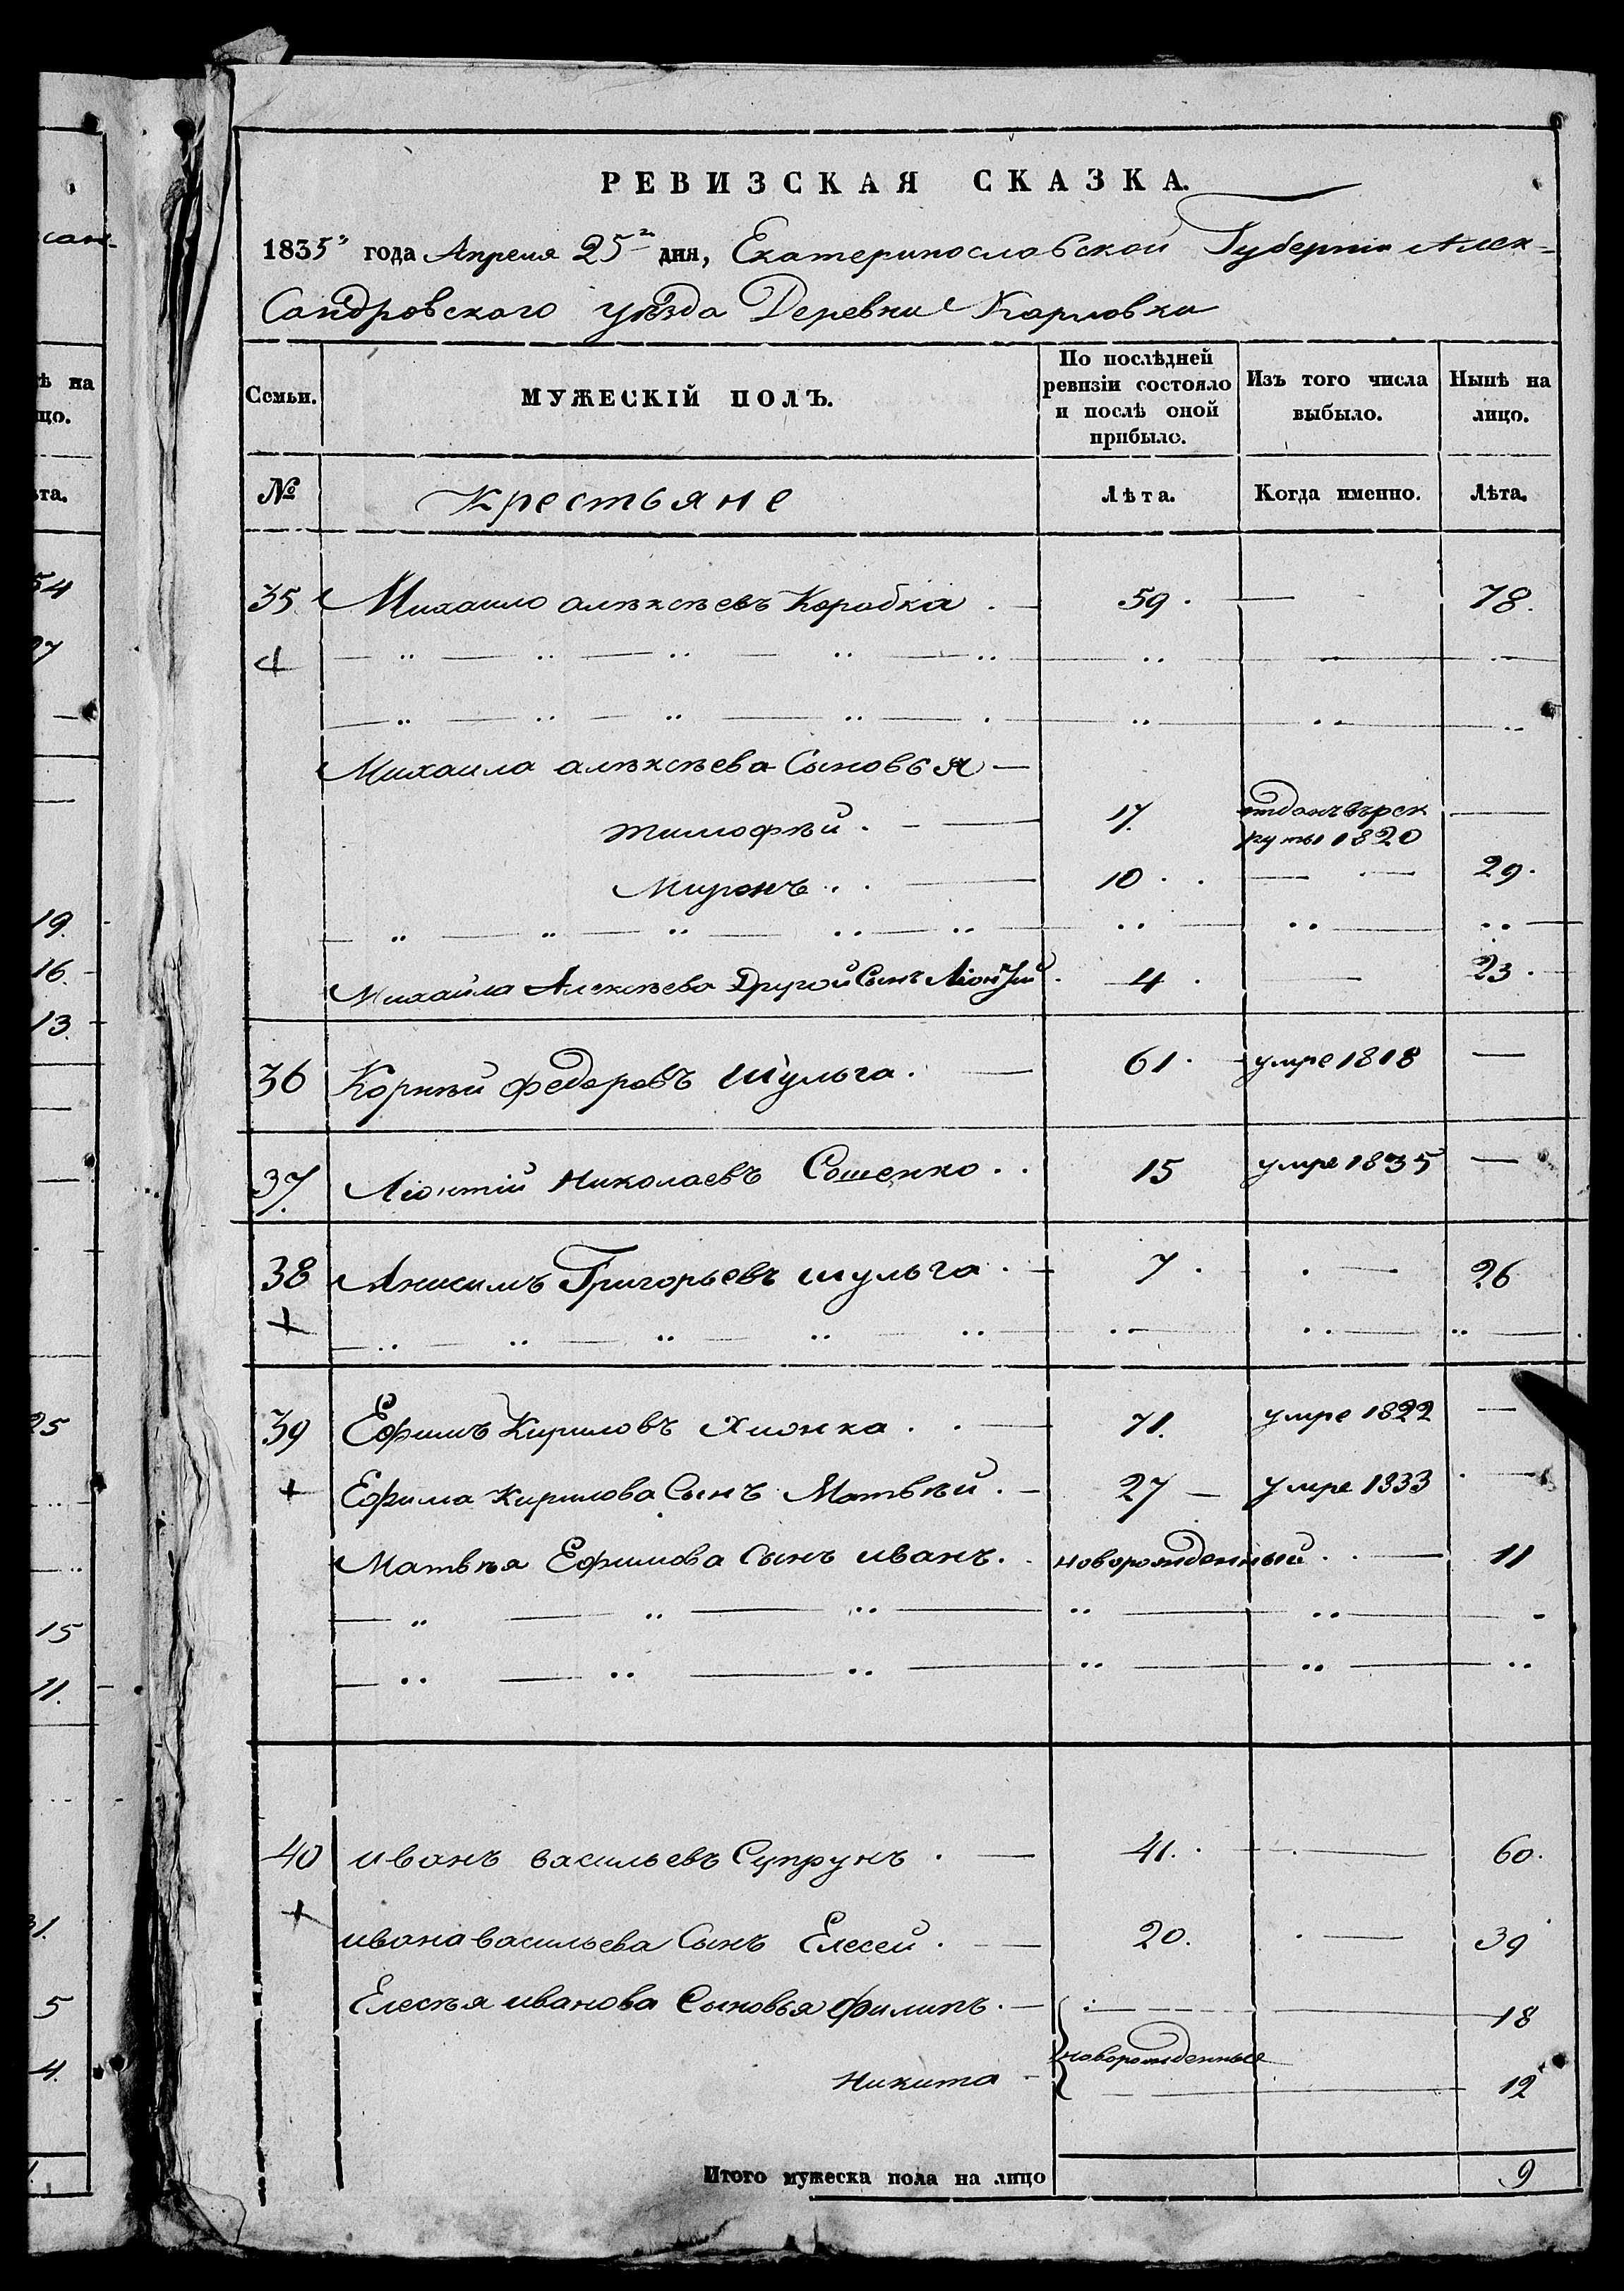 РЕВИЗСКАЯ СКАЗКА.
1835го года Апреля 25го дня, Екатеринославской Губернiи Алек-
сандровского уѣзда Деревни Карловки
Семьи. МУЖЕСКІЙ ПОЛЪ. По послѣдней ревизіи состояло и послѣ оной прибыло. Изъ того числа выбыло. Нынѣ на лицо.
№ Крестьяне Лѣта. Когда именно. Лѣта.
35 Михаило алѣксѣевъ Коробка 59. 78.
Михаила алѣксѣева Сыновья
тимофѣй. 17. отданъ въ рек
руты 1820
Миронъ 10. 29.
Михайла Алексѣева Другой Сынъ Ліонтій 4 23.
36 Корнѣй федоровъ шульга. 61. умре 1818
37. Ліонтій Николаевъ Сошенко 15 умре 1835
38 Анисимъ Григорьевъ шульга 7. 26
39 Ефимъ Кириловъ Хмонка 71. умре 1822
Ефима Кирилова Сынъ Матвѣй. 27 умре 1833
Матвѣя Ефимова Сынъ иванъ. новорожденный 11
40 иванъ васильевъ Супрунъ 41. 60.
ивана васильева Сынъ Елесей 20. 39
Елесѣя иванова Сыновья филипъ. 18
новорожденные
Никита 12
Итого мужеска пола на лицо 9
сан-
ѣ на
цо.
ѣта.
54
27
19.
16.
13
25
15
11.
31.
5
4.